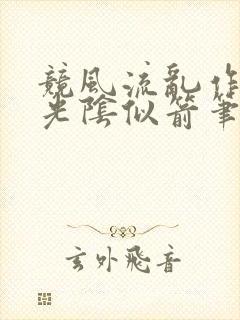 競風流亂作
光陰似箭筆
玄外飛音